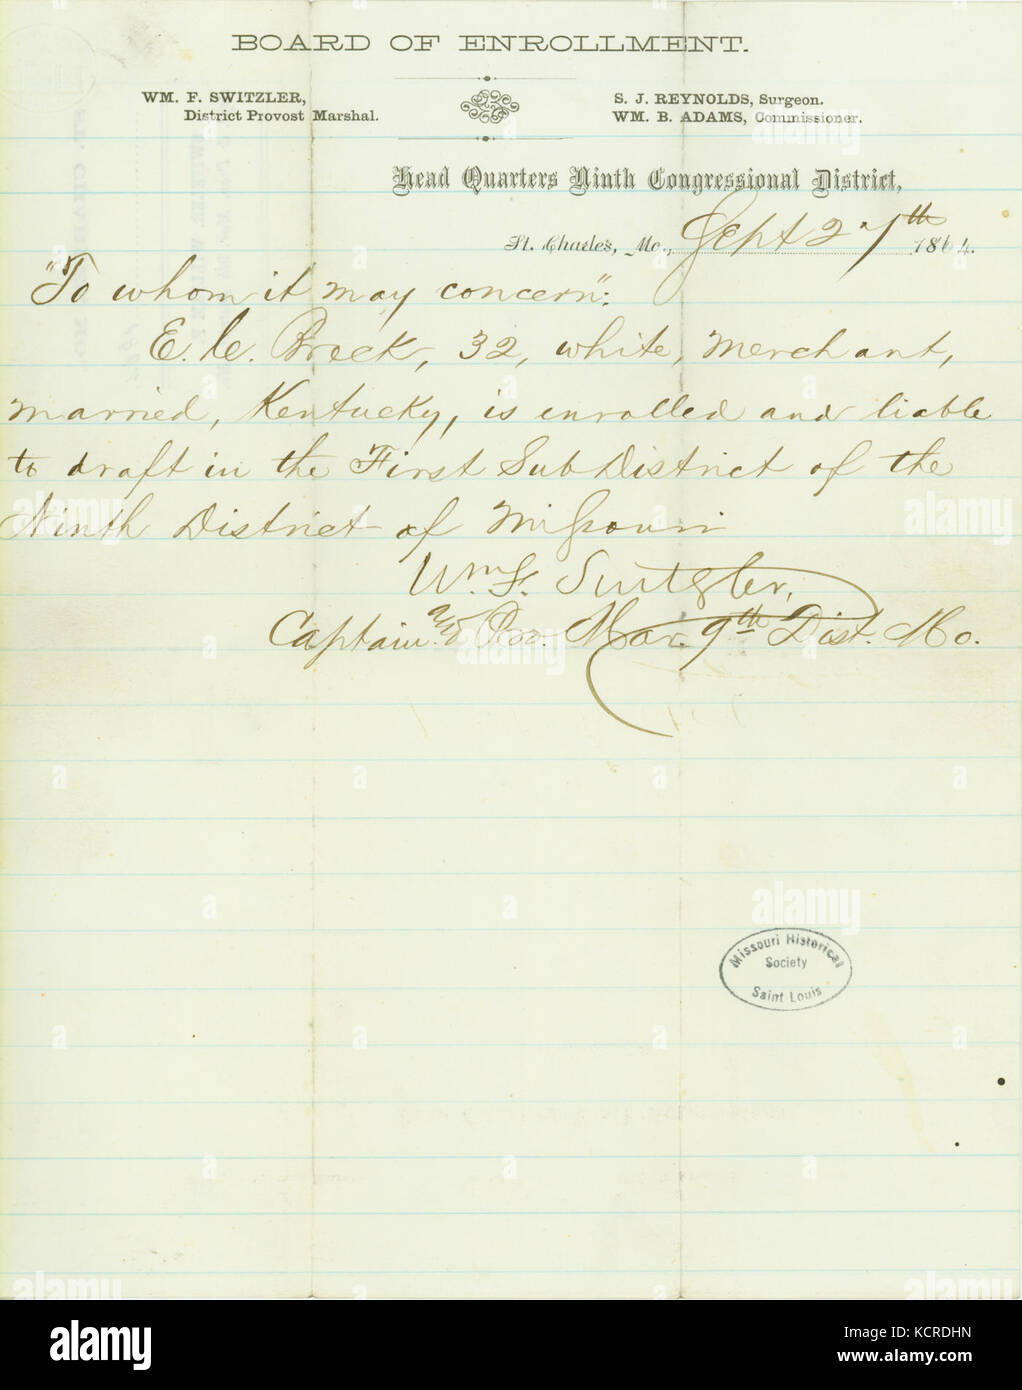 BOARD OF ENROLLMENT.
WM. F. SWITZLER,
District Provost Marshal.
S. J. REYNOLDS, Surgeon.
WM. B. ADAMS, Commissioner.
Head Quarters Ninth Congressional District,
St. Charles, Mo., Sept 27th 1864.
"To whom it may concern":
E. C. Breck, 32, white, Merchant,
married, Kentucky, is enrolled and liable
to draft in the First Sub District of the
Ninth District of Missouri
Wm F. Switzler,
Captain & Pro. Mar. 9th Dist. Mo.
Missouri Historical
Society
Saint Louis
alamy
Image ID: KCRDHN
www.alamy.com